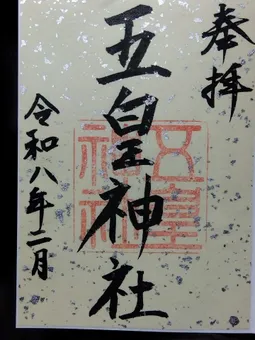 奉拝
五皇神社
五皇神社
令和八年二月